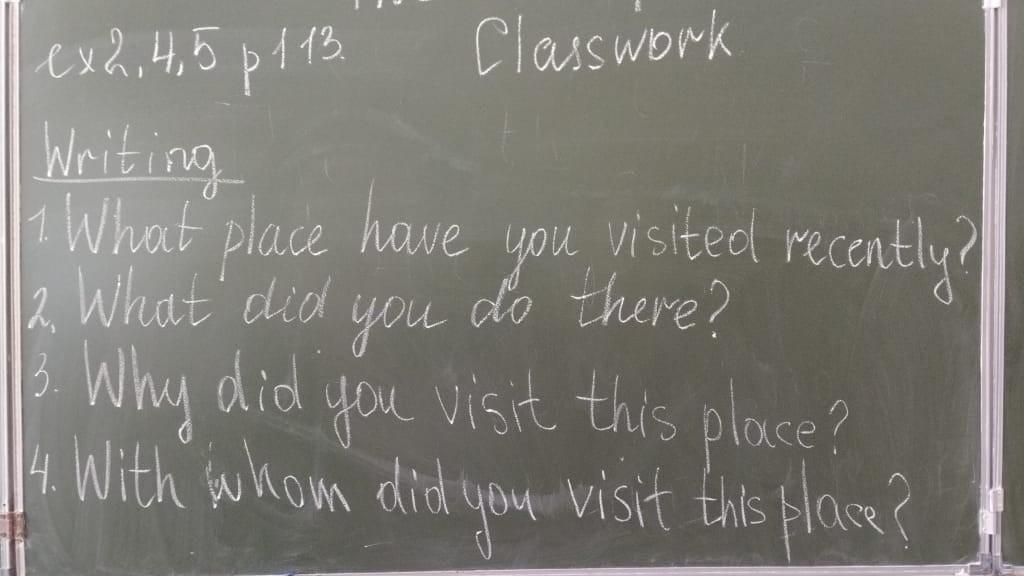 ex 2, 4, 5 p 113. Classwork
Writing
1. What place have you visited recently?
2. What did you do there?
3. Why did you visit this place?
4. With whom did you visit this place?